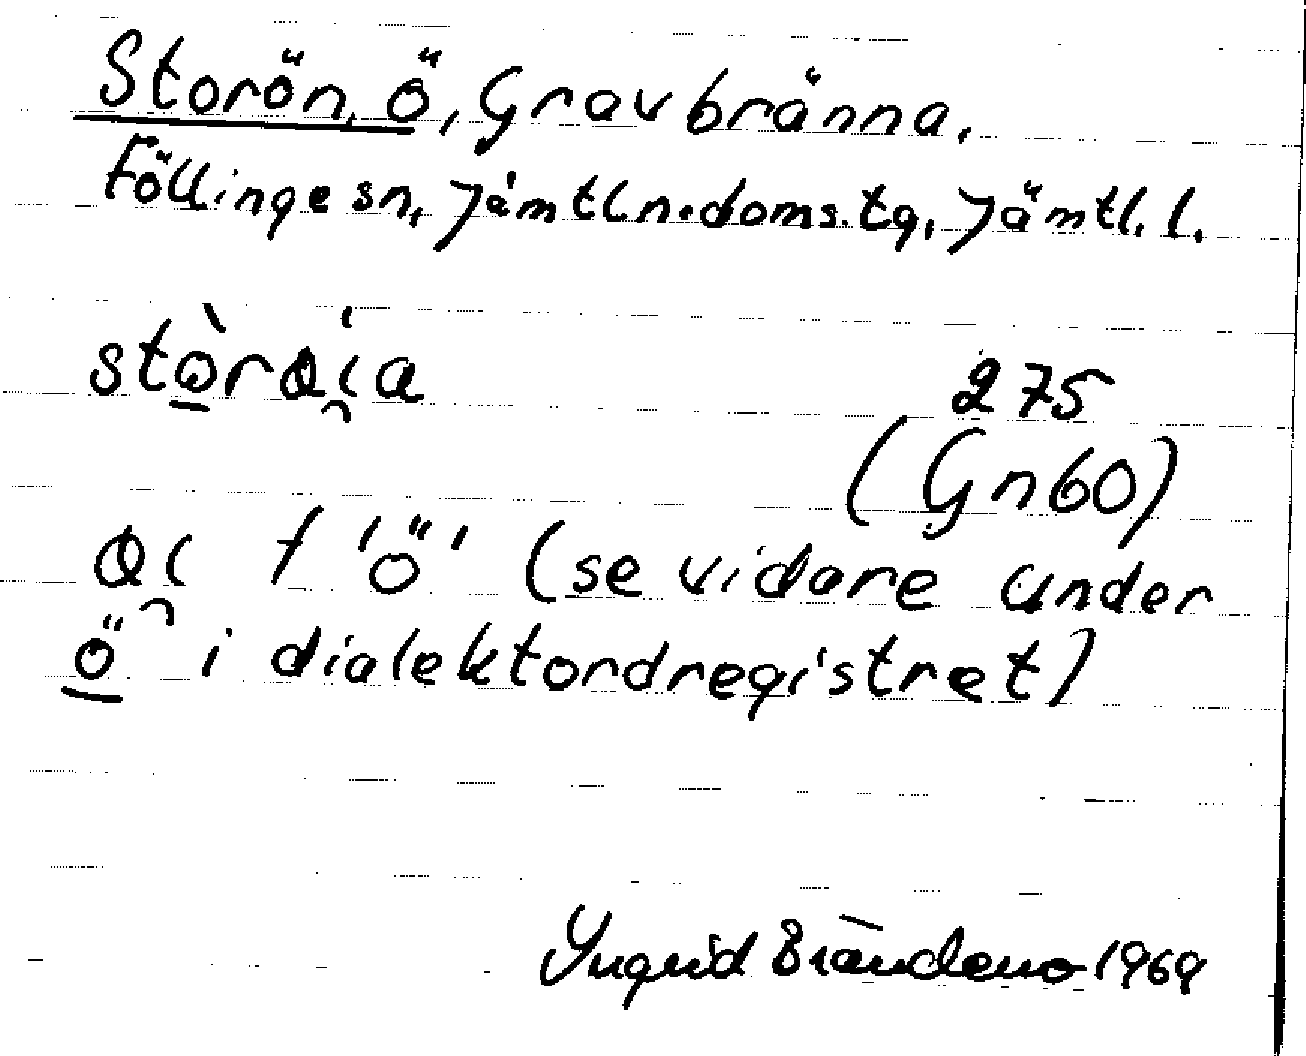 Storön, ö, Gravbränna,
Föllinge sn, Jämtl n. doms. tg, Jämtl. l.
275
(Gn60)
f 'ö' (se vidare under
ö i dialektordregistret)
Ingrid Brändeno 1969